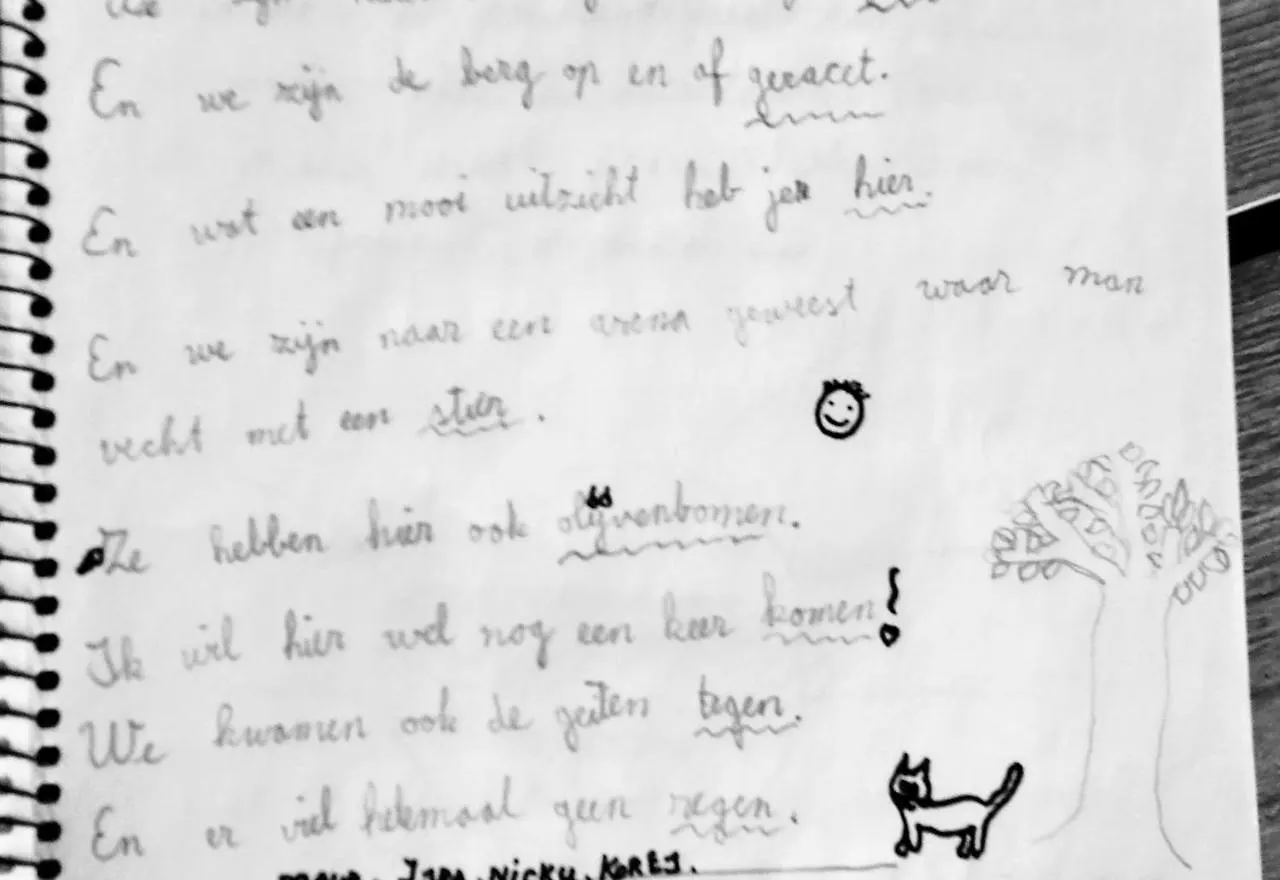 We zijn
En we zijn de berg op en af geracet.
En wat een mooi uitzicht heb je hier.
En we zijn naar een arena geweest waar man
vecht met een stier.
Ze hebben hier ook olijvenbomen.
Ik wil hier wel nog een keer komen!
We kwamen ook de geiten tegen.
En er viel helemaal geen regen.
Nicky.